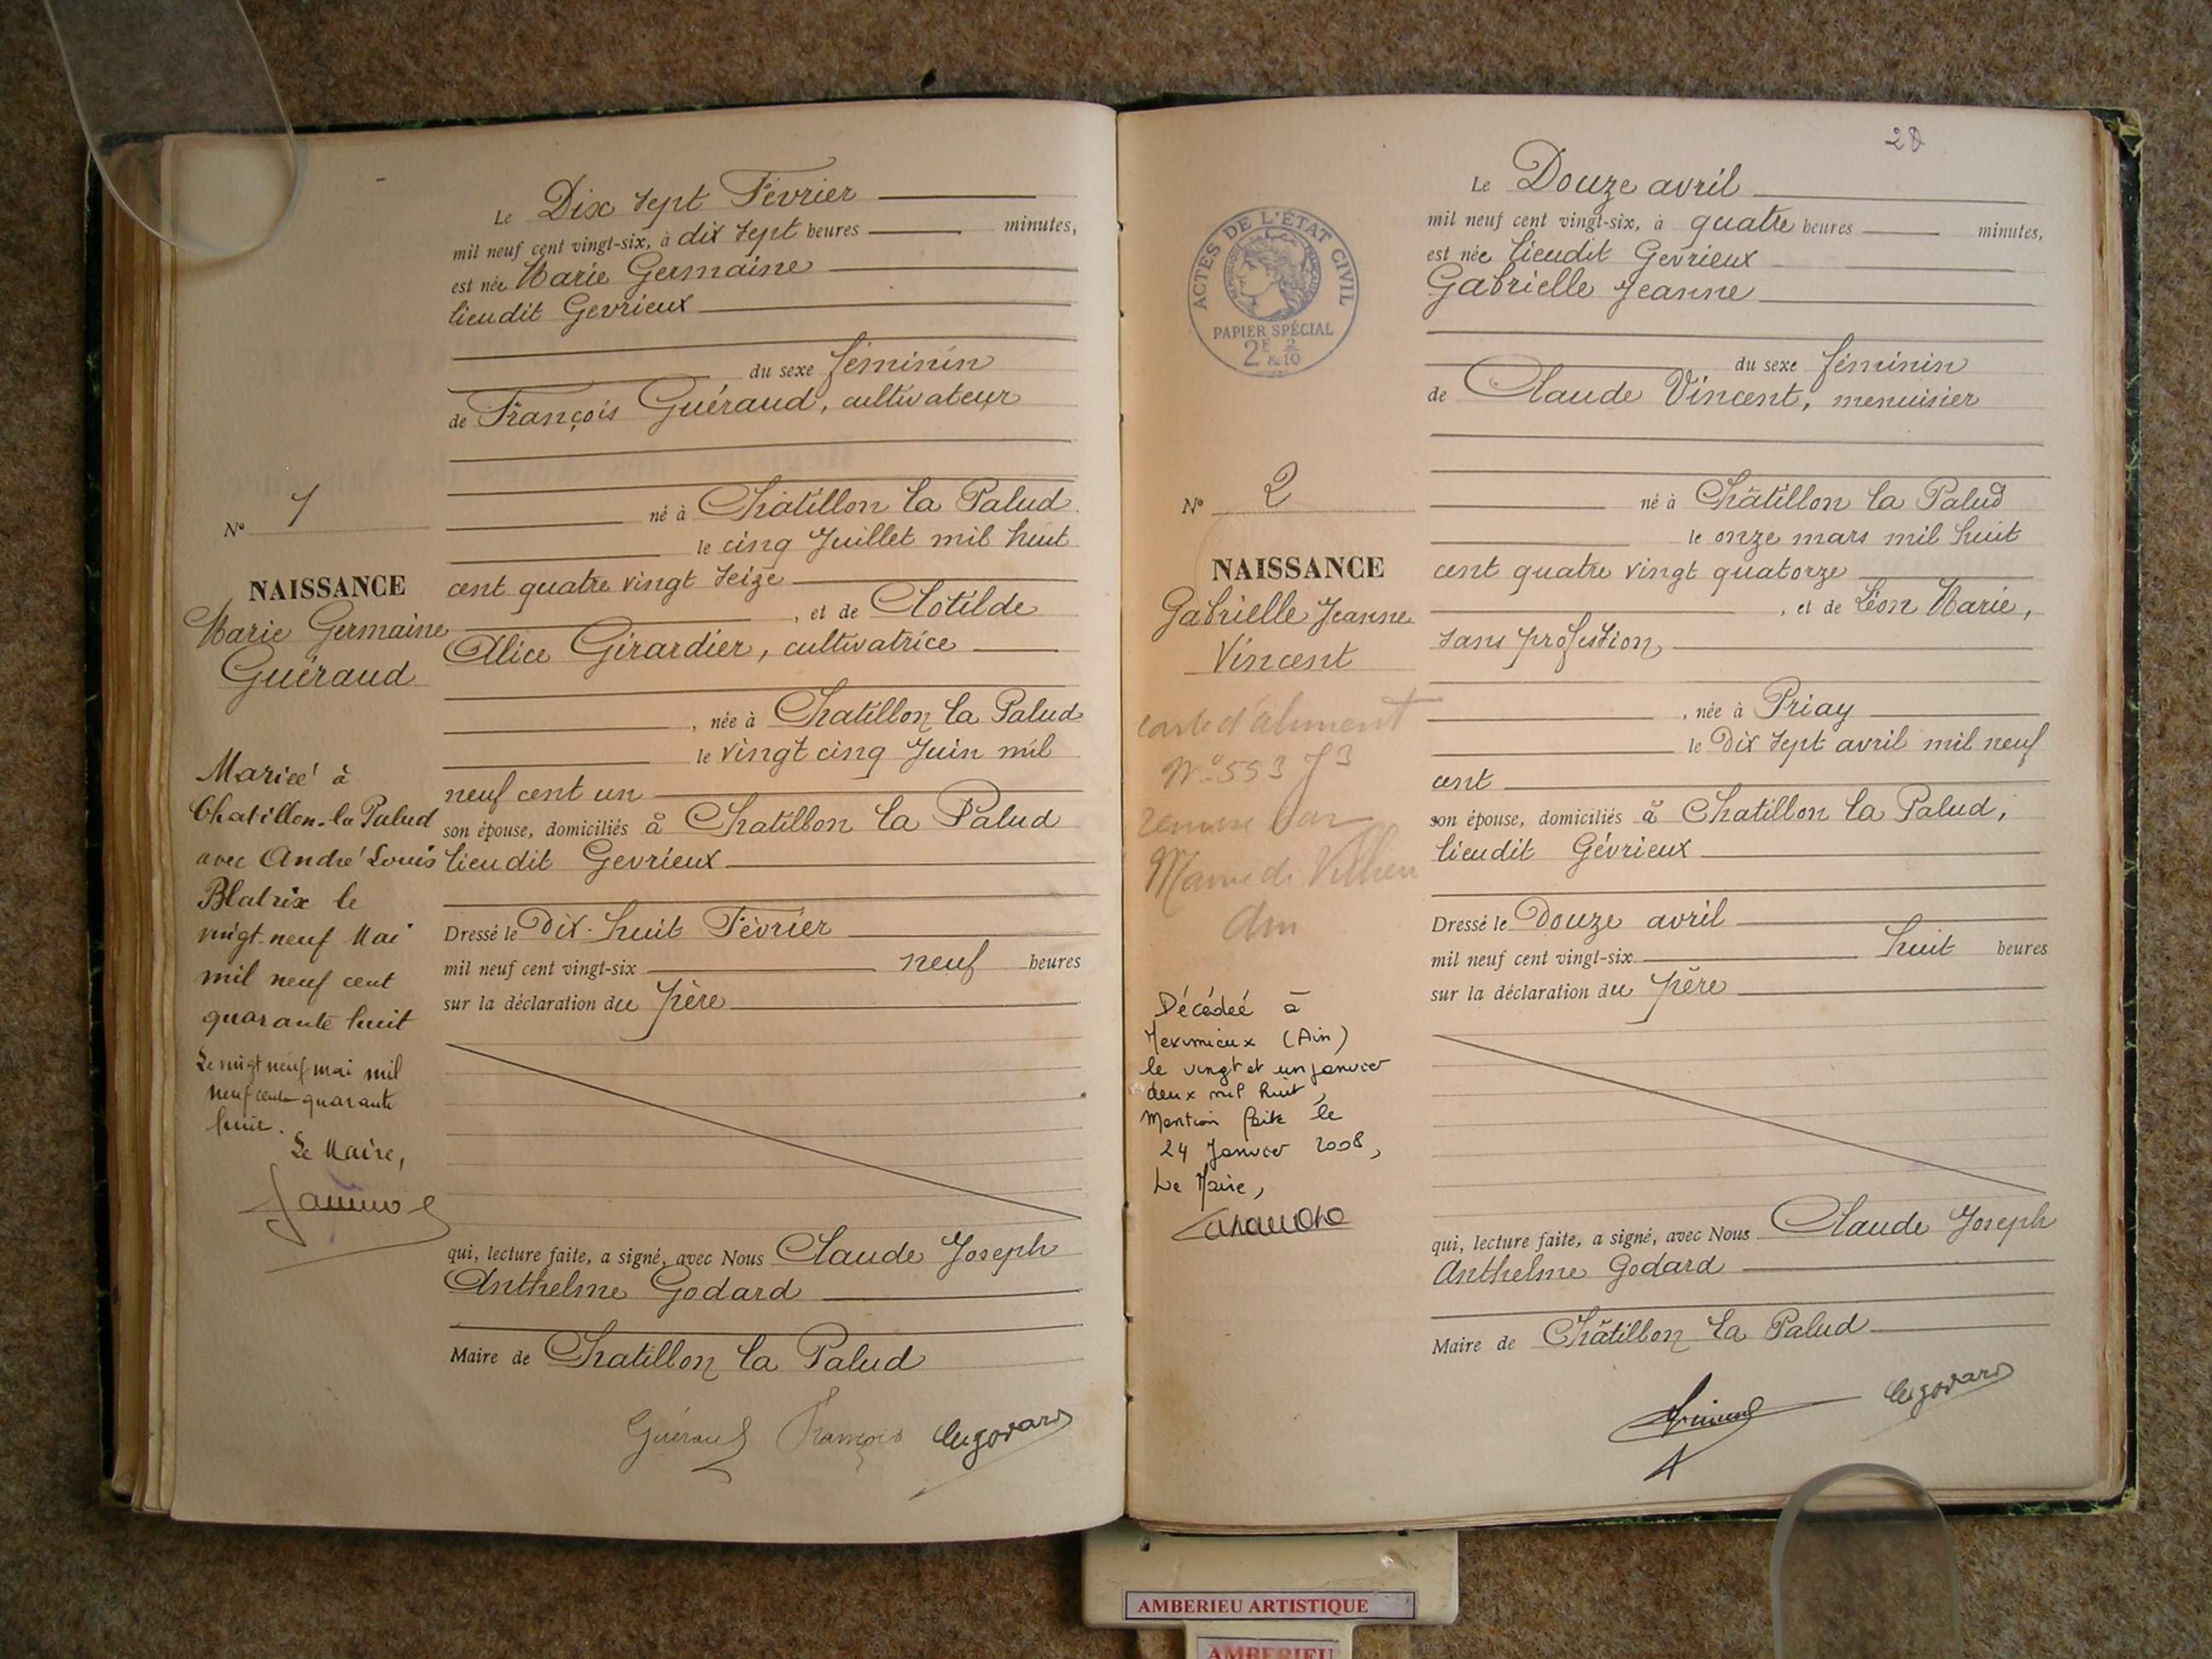 Le Dix sept Février
mil neuf cent vingt-six, à dix sept heures minutes,
est née Marie Germaine
lieudit Gevrieux
du sexe féminin
de François Guéraud, cultivateur
né à Châtillon la Palud
le cinq Juillet mil huit
cent quatre vingt seize
, et de Clotilde
Alice Girardier, cultivatrice
, née à Chatillon la Palud
le vingt cinq Juin mil
neuf cent un
son épouse, domiciliés à Chatillon la Palud
lieudit Gevrieux
Dressé le Dix-huit Février
mil neuf cent vingt-six neuf heures
sur la déclaration du père
qui, lecture faite, a signé, avec Nous Claude Joseph
Anthelme Godard
Maire de Chatillon la Palud
Guéraud François
No 1
NAISSANCE
Marie Germaine
Guéraud
Mariée à
Chatillon-la Palud
avec André Louis
Blatrix le
vingt-neuf Mai
mil neuf cent
quarante huit
Le vingt neuf mai mil
neuf cent quarante
huit.
Le Maire,
28
Le Douze avril
mil neuf cent vingt-six, à quatre heures minutes,
est née lieudit Gevrieux
Gabrielle Jeanne
du sexe féminin
de Claude Vincent, menuisier
né à Châtillon la Palud
le onze mars mil huit
cent quatre vingt quatorze
, et de Léon Marie,
sans profession
, née à Priay
le Dix sept avril mil neuf
cent
son épouse, domiciliés à Chatillon la Palud,
lieudit Gévrieux
Dressé le Douze avril
mil neuf cent vingt-six huit heures
sur la déclaration du père
qui, lecture faite, a signé, avec Nous Claude Joseph
Anthelme Godard
Maire de Châtillon la Palud
ACTES DE L'ÉTAT CIVIL
PAPIER SPÉCIAL
2F & 2/10
No 2
NAISSANCE
Gabrielle Jeanne
Vincent
carte d'aliment
No 553 J3
Décédée à
Meximieux (Ain)
le vingt et un janvier
deux mil huit,
Mention faite le
24 Janvier 2008,
Le Maire,
AMBERIEU ARTISTIQUE
AMBERIEU